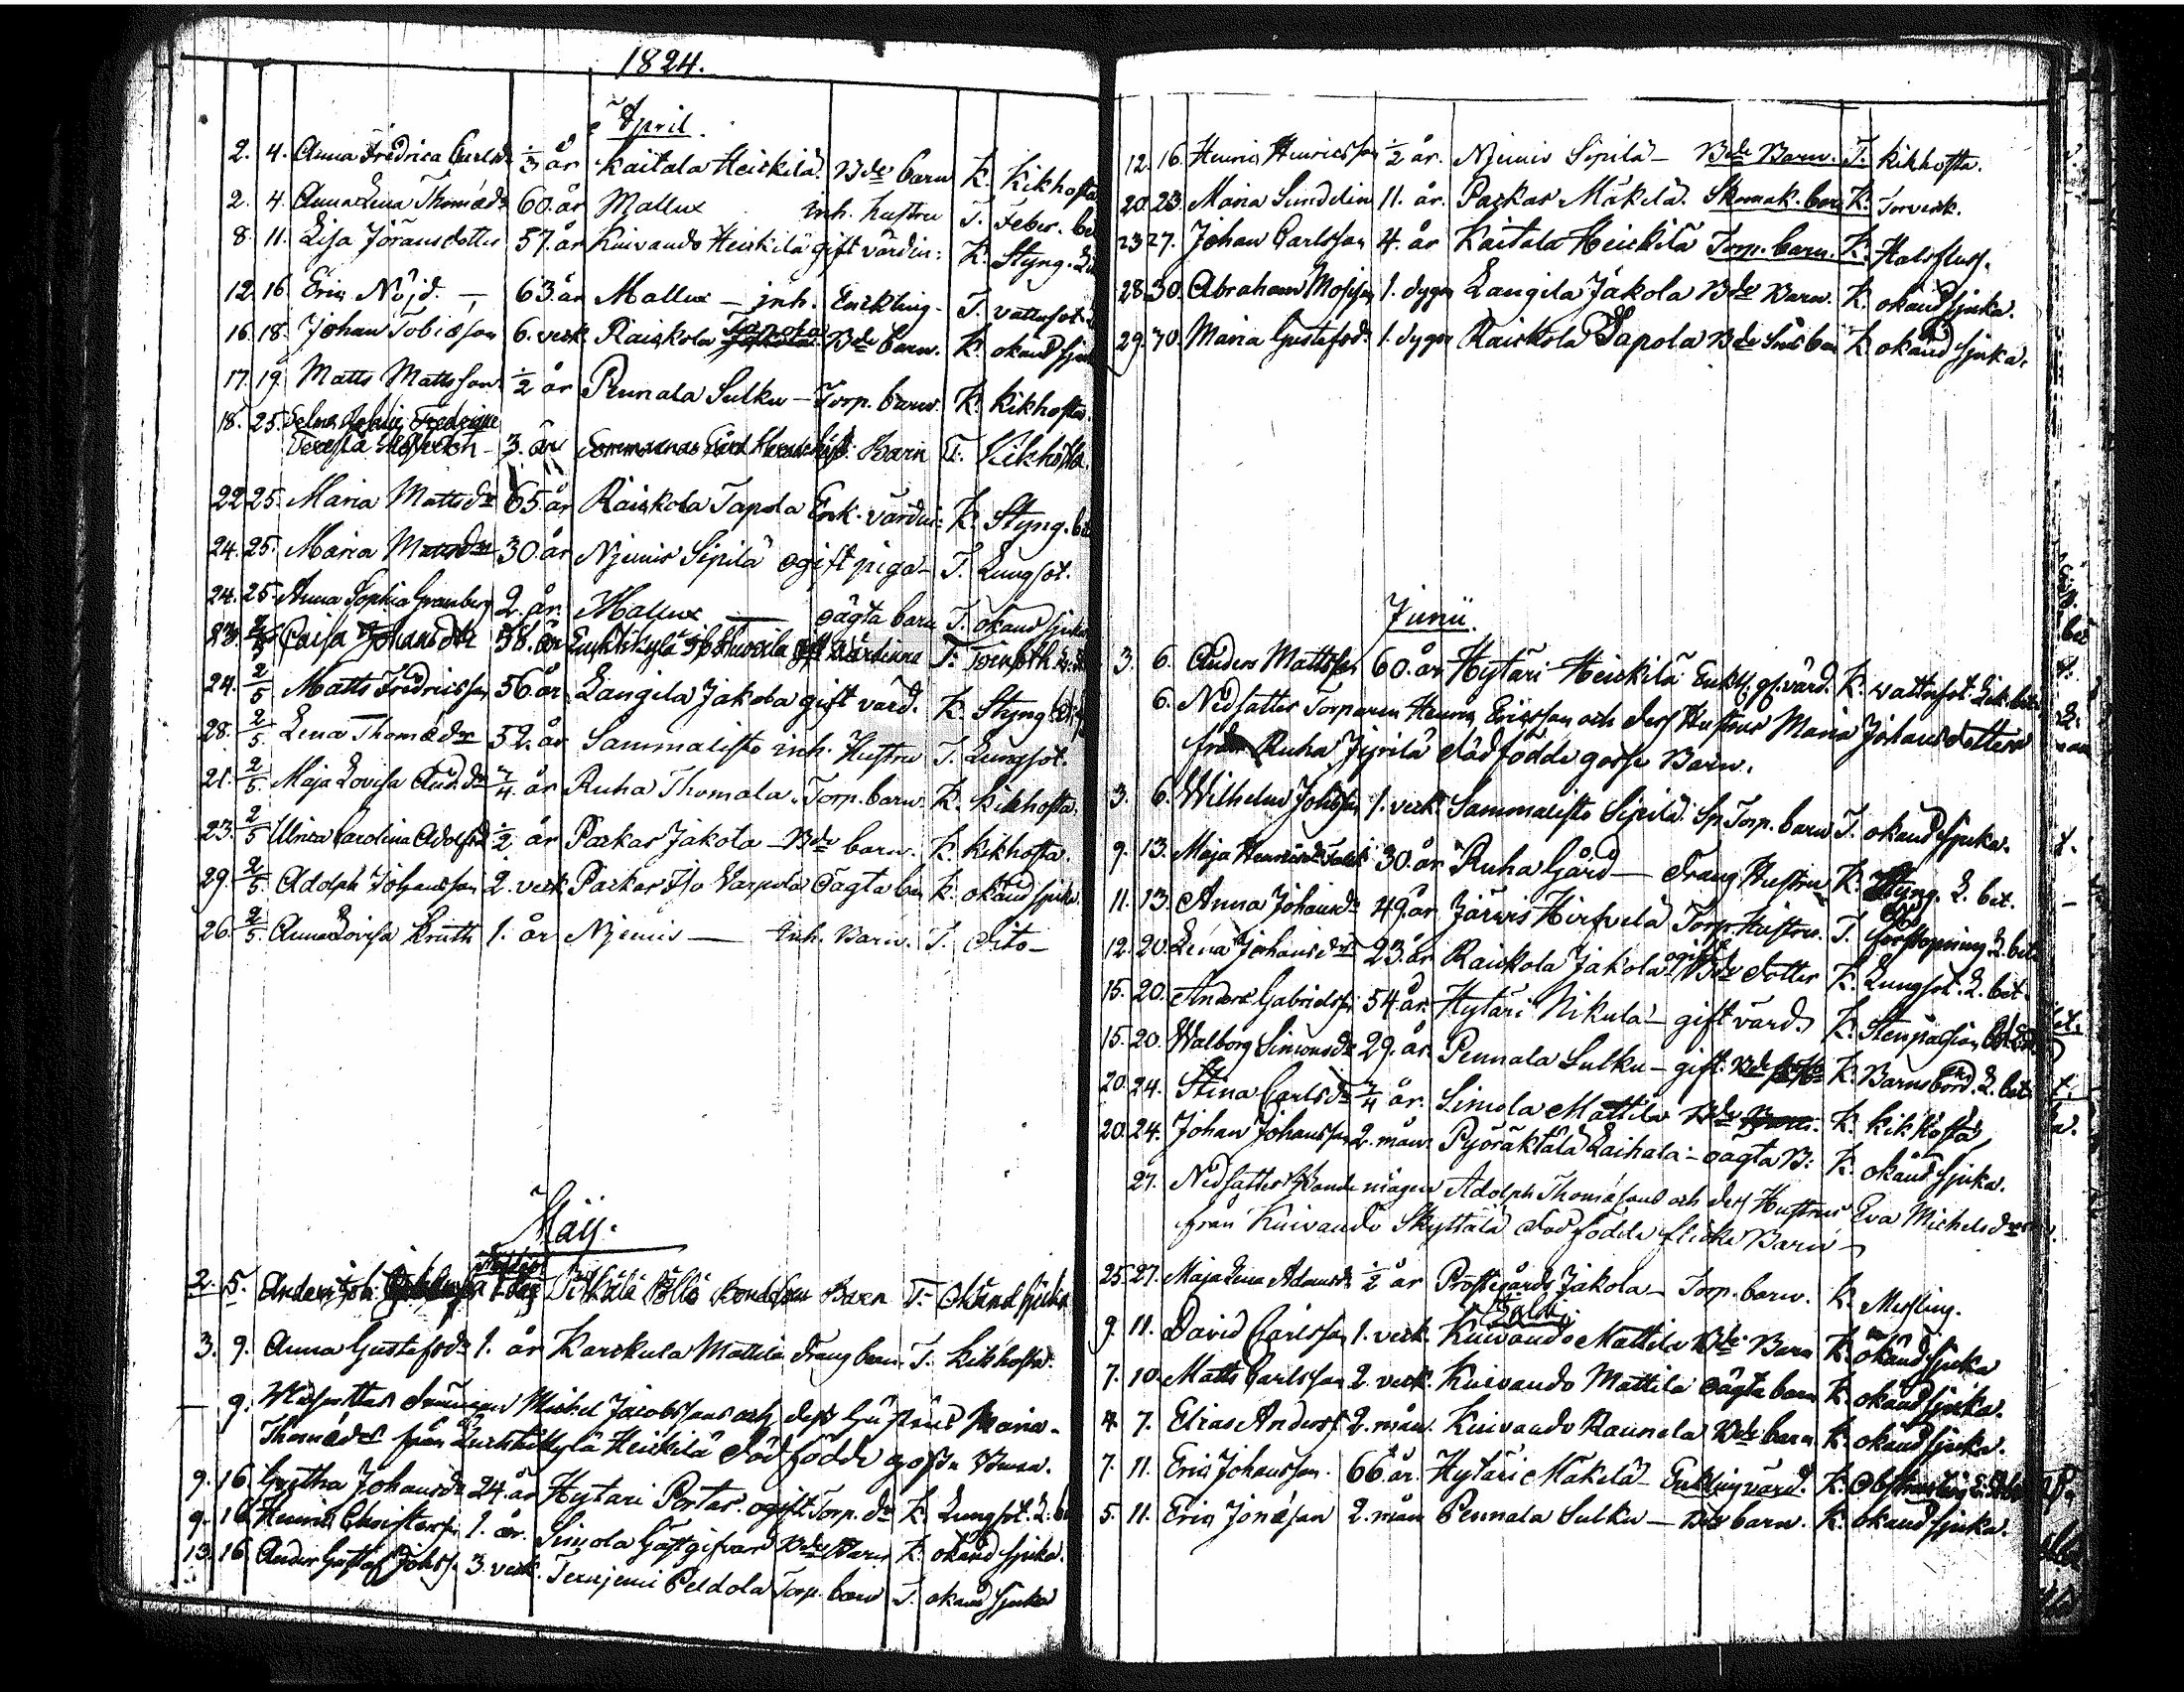 1824.
April.
2. 4. Anna Fredrica Carlsdr ⅓ år Kaitala Heickilä Bde barn K. Kikhosta
2. 4. Anna Lena Thomædr 60. år Mallux inh. hustru T. Feber.
8. 11. Lisa Jöransdotter 57. år Kuivando Heickilä gift värdin: K. Styng.
12. 16 Eric Nöjd. — 63. år Mallux — inh. Enckling. T. vattusot.
16. 18. Johan Tobiæson 6. veck. Raiskola Tapola Bde barn. K. okänd sjuk
17. 19. Matts Mattsson ½ år Pennala Sulku — Torp. barn. K. Kikhosta.
18. 25. Fredrique
3. år Barn T. Kikhosta.
22. 25. Maria Mattsdr 65. år Raiskola Tapola Enk. värdin: K. Styng.
24. 25. Maria 30. år Njemis Sipilä ogift piga — T. Lungsot.
24. 25. Anna Sophia Granberg 2. år. Mallux — oägta barn T. okänd sjuka
23. 2/5 Caisa Johansdtr 58. år värdinna T.
24. 2/5 Matts Fredricsson 56. år Langila Jakola gift värd. K. Styng
28. 2/5. Lena Thomædr 52. år Sammalisto inh. Hustru T. Lungsot.
21. 2/5. Maja Lovisa And.dr ¾ år Ruha Thomala. Torp. barn. K. Kikhosta.
23. 2/5 Ulrica Carolina Adolfsd ½ år Parkas Jakola — Bde barn. K. Kikhosta.
29. 2/5. Adolph Johansson 2. veck Parkas Iso Varpula Oägta barn K. okänd sjuka.
26. 2/5. Anna Lovisa Knuth 1. år Njemis — inh. Barn. T. Dito —
Maij.
2. 5. Barn T. Okänd sjuka
3. 9. Anna Gustafsdr 1. år Karskula Mattila Dräng barn. T. Kikhosta.
— 9. Nedsattes Drängen Michel Jacobssons och dess Hustrus Maria
Thomædr från Heickilä Död födde gosse
9. 16 Gretha Johansdr 24. år Hytari Portas. ogift Torp. dr K. Lungsot. L.
9. 16 Henric Christersson 1. år. Simola Gästgifvar Bde Barn K. okänd sjuka.
13. 16. Anders Gustaf Johss. 3. veck. Terrijemi Peldola Torp. barn T. okänd sjuka
12. 16. Henric Henricsson ½ år. Njemis Sipilä — Bde Barn. T. Kikhosta.
20. 23. Maria Sunddlin 11. år. Parkas Mäkelä. Skomak. barn K. Torverk.
23 27. Johan Carlsson 4. år Kaitala Heickilä Torp. barn. K. Halsfluss.
28. 30. Abraham Mosisson 1. dygn Langila Jakola Bde Barn. K. okänd sjuka.
29. 30. Maria Gustafsd. 1. dygn Raiskola Tapola Bde K. okänd sjuka.
Junii.
3. 6. Anders Mattsson 60. år Hytäri Heickilä Enkl. gl. värd. K. vattusot. L. bet.
6. Nedsattes Torparen Henric Ericsson och dess Hustrus Maria Johansdotters
från Ruha Jyrilä död födde gosse Barn.
3. 6. Wilhelm Johsson 1. veck. Sammalisto Sipilä. Sp. Torp. barn T. okänd sjuka.
9. 13. Maja Henricsdr 30. år Ruha Gård — Dräng Hustru K. Styng. L. bet.
11. 13. Anna Johansdr 49. år Järvis Hirfvelä Torp. Hustru. T. förstoppning L. bet.
12. 20. Lena Johansdr 23. år Raiskola Jakola ogift Bde dotter K. Lungsot. L. bet.
15. 20. Anders Gabrielsson 54. år. Hytäri Nikula — gift värd. K. Stenpassion
15. 20. Walborg Simonsdr 29. år. Pennala Sulku — gift. Bde K. Barnsbörd. L. bet.
20. 24. Stina Carlsdr ¾ år. Simola Mattila Bde Barn. K. Kikhosta
20. 24. Johan Johansson 2. mån. Pyöräktälä Laihala — oägta B: K. okänd sjuka.
27. Nedsattes Bonde mågen Adolph Thomæsons och dess Hustrus Eva Michelsdrs
från Kuivando Skyttälä död födde flicke Barn —
25. 27. Maja Lena Adamsd. ½ år Prostegårds Jakola — Torp. barn. K. Messling.
9. 11. David Carlsson 1. veck. Kuivando Mattila Bde Barn K. okänd sjuka
7. 10. Matts Carlsson 2. veck. Kuivando Mattila oägta barn K. okänd sjuka.
4. 7. Elias Anderss. 2. mån. Kuivando Raunela Bde barn K. okänd sjuka.
7. 11. Eric Johansson. 66. år. Hytäri Mäkelä — Enkling värd. K.
5. 11. Eric Jonæson 2. mån Pennala Sulku — Bde barn. K. okänd sjuka.